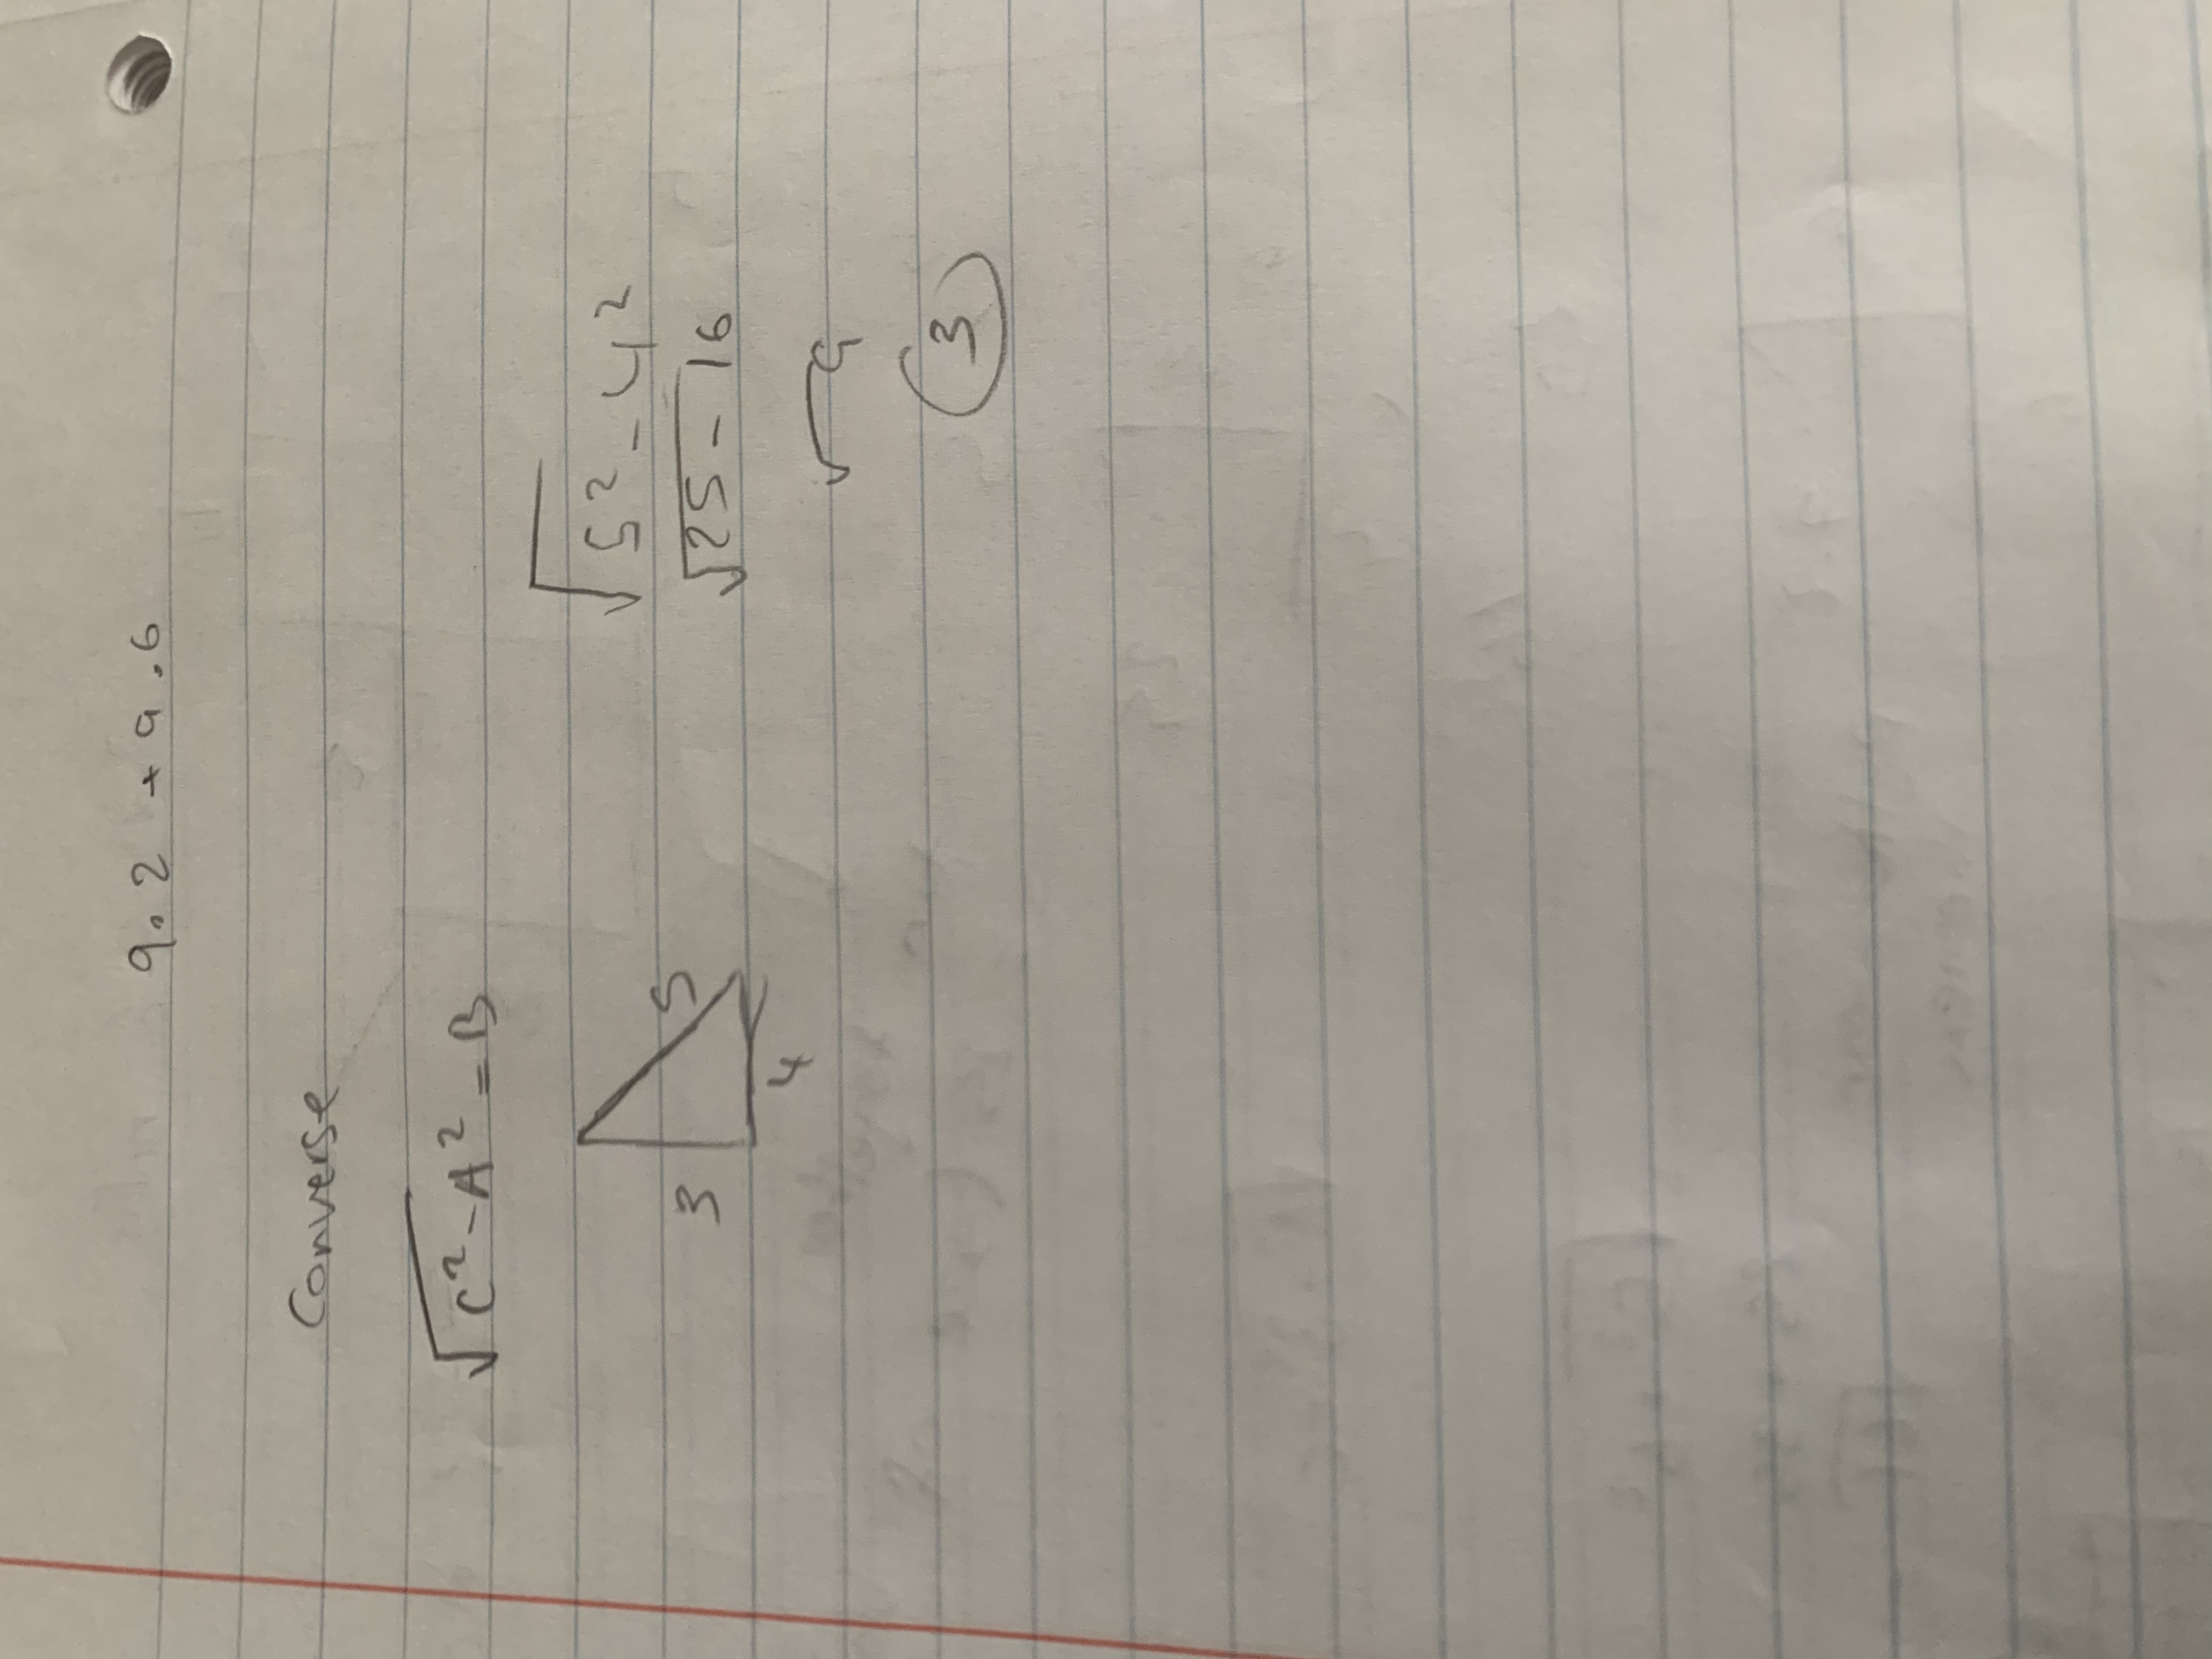 9.2 + 9.6
Converse
√C² - A² = B
3
5
4
√5² - 4²
√25 - 16
√9
3